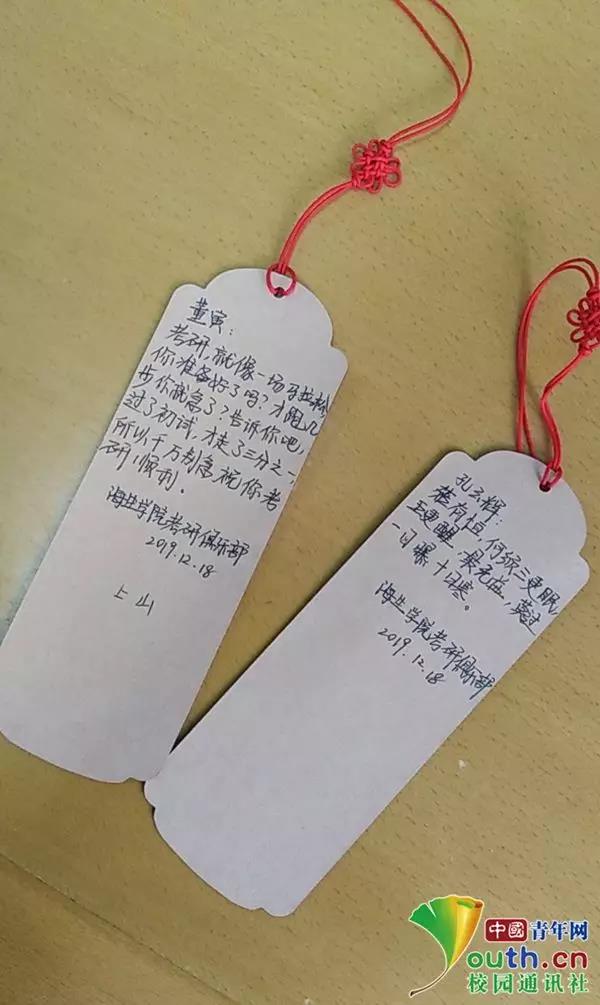 董寅：
考研，就像一场马拉松，
你准备好了吗？才跑几
步你就急了？告诉你吧，
过了初试，才走了三分之一，
所以，千万别急，祝你考
研，顺利。
海生学院考研俱乐部
2019.12.18
上山
孔玄辉：
苟有恒，何须三更眠，
五更醒，最无益，莫过
一日曝十日寒。
海生学院考研俱乐部
2019.12.18
中國青年网
youth.cn
校园通讯社